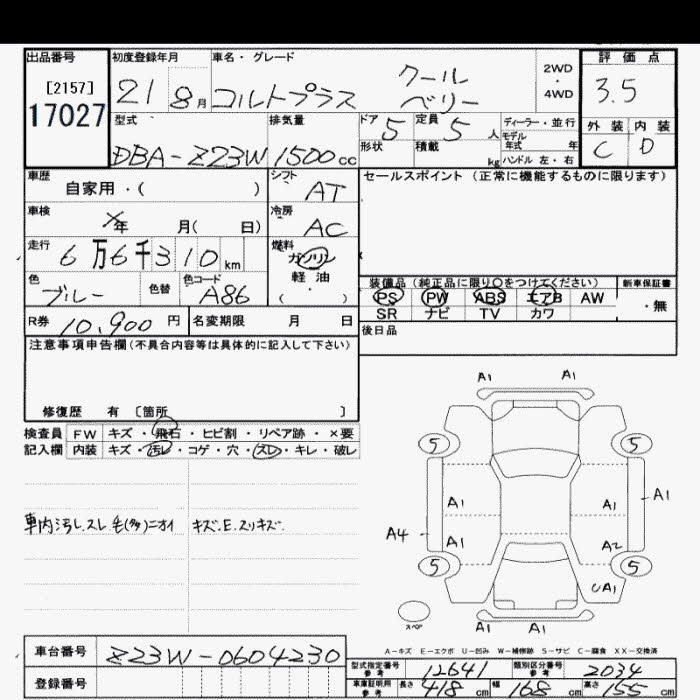 出品番号
[2157]
17027
初度登録年月
21 8月
車名・グレード
コルトプラス
クール
ベリー
2WD
・
4WD
評価点
3.5
外装 内装
C D
型式
DBA-Z23W
排気量
1500cc
ドア 5
定員 5人
形状
積載 kg
ディーラー・並行
モデル
年式 年
ハンドル 左・右
車歴
自家用・( )
シフト
AT
車検
年 月( 日)
冷房
AC
走行
6万6千310km
燃料
ガソリン
軽油
・
( )
色
ブルー
色替
色コード
A86
R券 10,900円
名変期限 月 日
セールスポイント(正常に機能するものに限ります)
装備品(純正品に限り○をつけてください)
新車保証書
PS PW ABS エアB AW
SR ナビ TV カワ
・無
後日品
注意事項申告欄(不具合内容等は具体的に記入して下さい)
修復歴 有 〔箇所 〕
検査員
記入欄
FW キズ・飛石・ヒビ割・リペア跡・×要
内装 キズ・汚レ・コゲ・穴・スレ・キレ・破レ
車内汚レ.スレ.毛(多)ニオイ
キズ.E.スリキズ.
A1 A1
5 5
A1 A1 A1
A4 A1 A2
5 5
UA1
スペア
A1 A1
A-キズ E-エクボ U-凹み W-補修跡 S-サビ C-腐食 XX-交換済
車台番号 Z23W-0604230
登録番号
型式指定番号
参考
12641
類別区分番号
参考
2034
車庫証明用
参考
長さ 418cm 幅 168cm 高さ 155cm